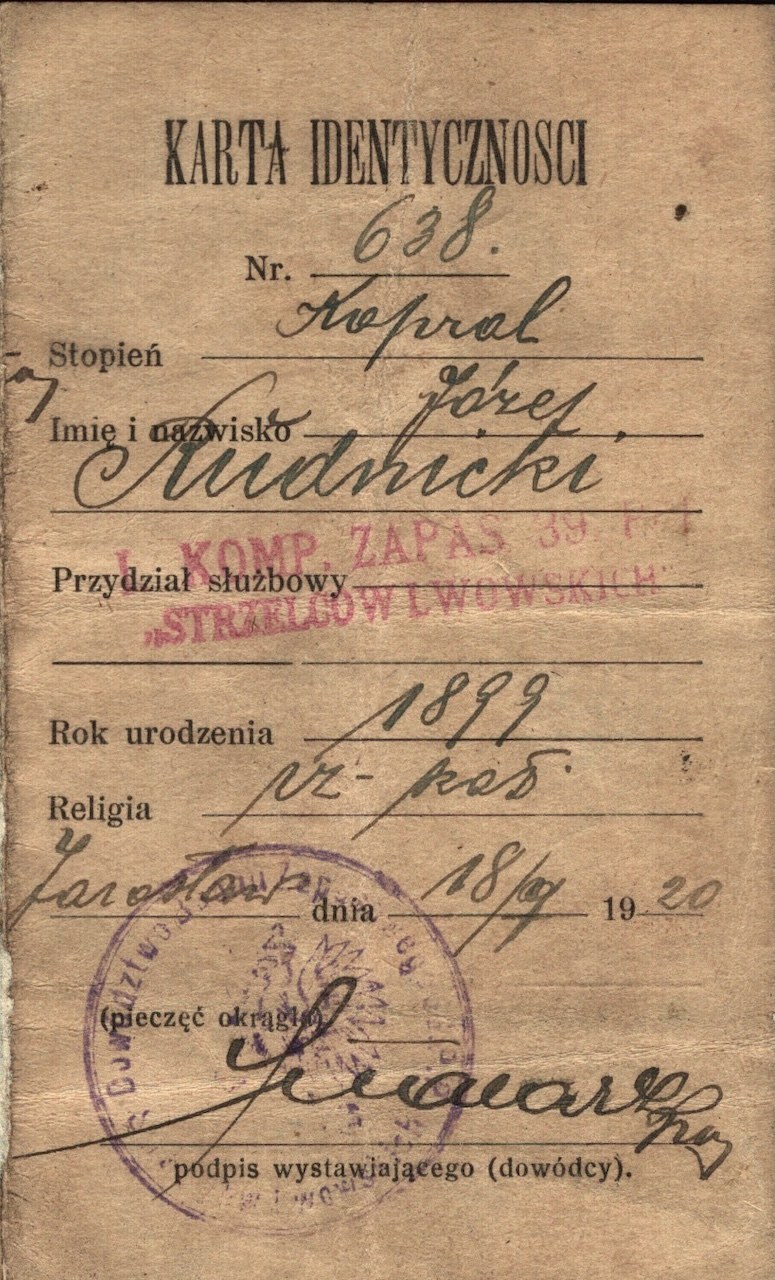 KARTA IDENTYCZNOSCI
Nr. 638.
Stopień Kapral
Imię i nazwisko Józef
Rudnicki
I. KOMP. ZAPAS. 39 P.
Przydział służbowy
„STRZELCÓW LWOWSKICH”
Rok urodzenia 1899
Religia rz-kat.
Jarosław dnia 18/ 1920
Dowództwo
(pieczęć okrągła)
podpis wystawiającego (dowódcy).